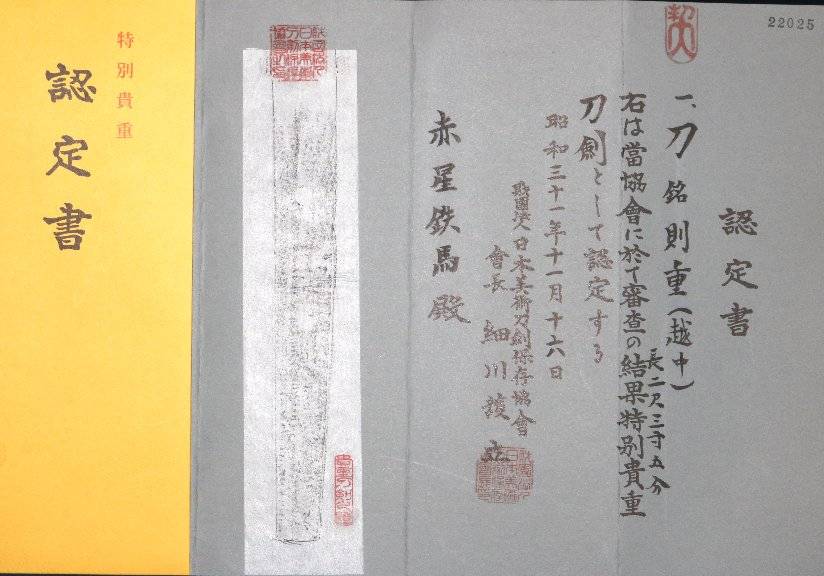 22025
認定書
一、刀 銘 則重（越中）
長二尺三寸五分
右は當協會に於て審査の結果特別貴重
刀劍として認定する
昭和三十一年十一月十六日
財團法人日本美術刀劍保存協會
會長 細川護立
赤星鉄馬殿
特別貴重
認定書